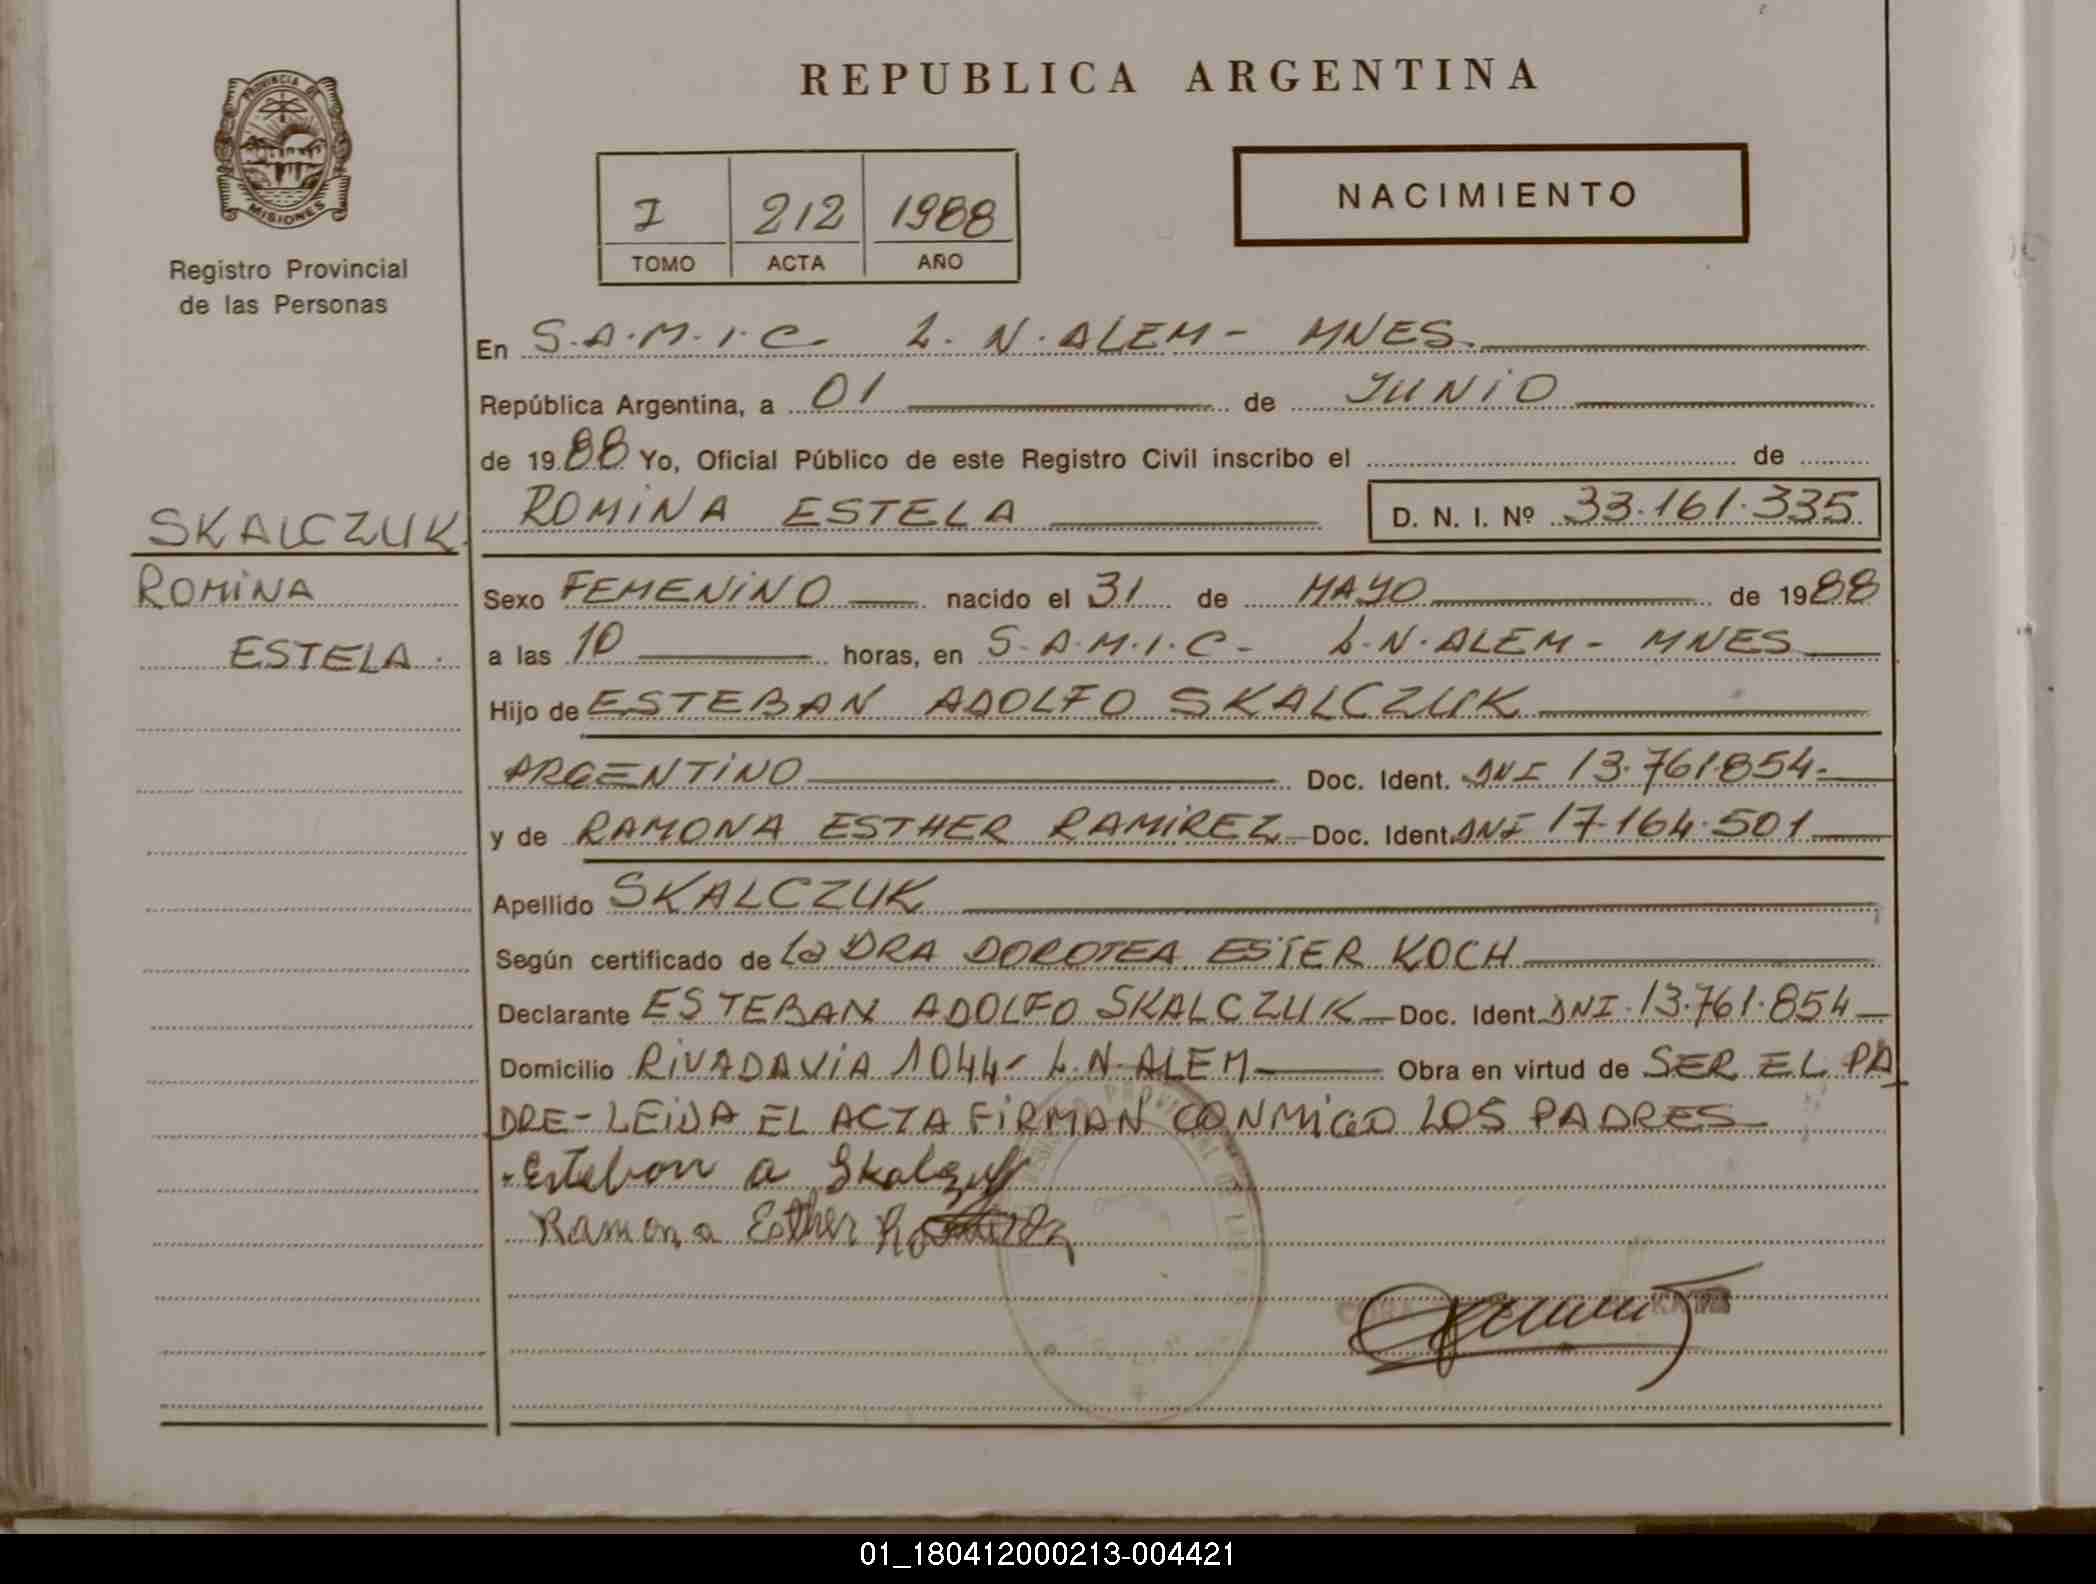 REPUBLICA ARGENTINA
PROVINCIA DE
MISIONES
Registro Provincial
de las Personas
I 212 1988
TOMO ACTA AÑO
NACIMIENTO
En S.A.M.I.C. L.N.ALEM- MNES.
República Argentina, a 01 de JUNIO
de 1988 Yo, Oficial Público de este Registro Civil inscribo el de
ROMINA ESTELA D. N. I. Nº 33.161.335
SKALCZUK
ROMINA
ESTELA.
Sexo FEMENINO nacido el 31 de MAYO de 1988
a las 10 horas, en S.A.M.I.C- L.N.ALEM- MNES
Hijo de ESTEBAN ADOLFO SKALCZUK
ARGENTINO Doc. Ident. DNI 13.761.854-
y de RAMONA ESTHER RAMIREZ Doc. Ident. DNI 17.164.501
Apellido SKALCZUK
Según certificado de la DRA DOROTEA ESTER KOCH
Declarante ESTEBAN ADOLFO SKALCZUK Doc. Ident. DNI.13.761.854
Domicilio RIVADAVIA 1044- L.N.ALEM Obra en virtud de SER EL PA
DRE- LEIDA EL ACTA FIRMAN CONMIGO LOS PADRES
Esteban a Skalczuk
Ramona Esther
01_180412000213-004421